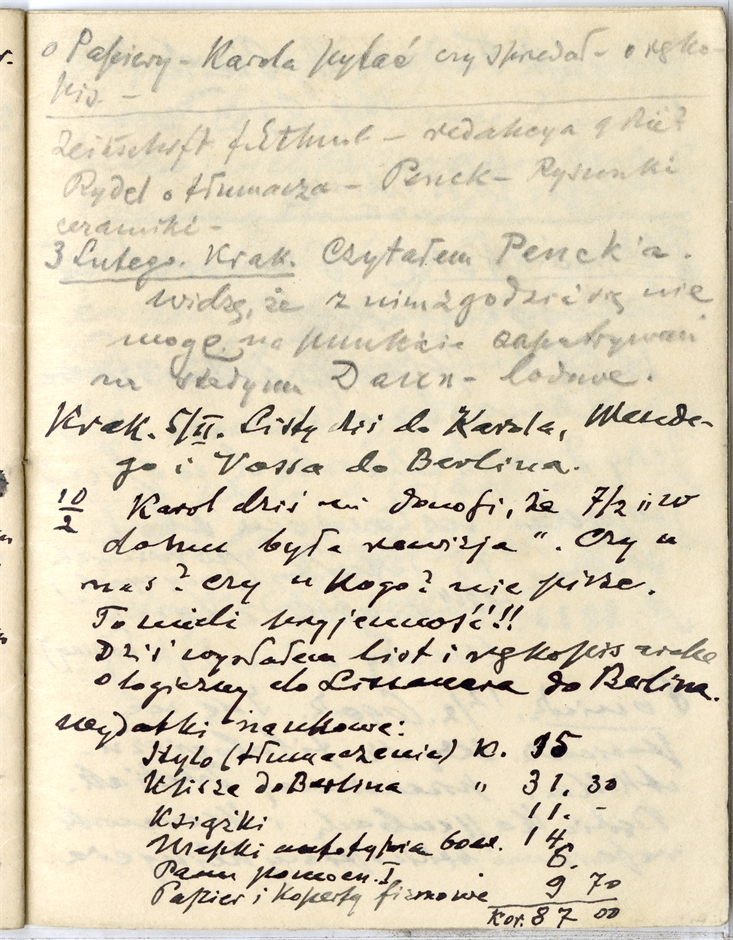 o Papiery - Karola pytać czy sprzedał - o ręko-
pis. -
Zeitschrift f. Ethnol - redakcya gdzie?
Rydel o tłumacza - Penck - Rysunki
ceramiki -
3 Lutego. Krak. Czytałem Penck'a.
widzę, że z nim zgodzić się nie
mogę na punkcie zapatrywań
na Daun - lodowe.
Krak. 5/II. Listy dziś do Karola,
go i Vossa do Berlina.
10/2 Karol dziś mi donosi, że 7/2 „w
domu była rewizja“. Czy u
nas? czy u kogo? nie pisze.
To mili przyjemność!!
Dziś wysłałem list i rękopis arche
ologiczny do Lissauera do Berlina.
Wydatki naukowe:
Stylo (tłumaczenie) K. 15
Klisze do Berlina " 31. 30
Książki 11. -
autotypia 60 14
Panu pomocn. I 6.
Papier i Koperty firmowe 9 70
Kor. 87 00